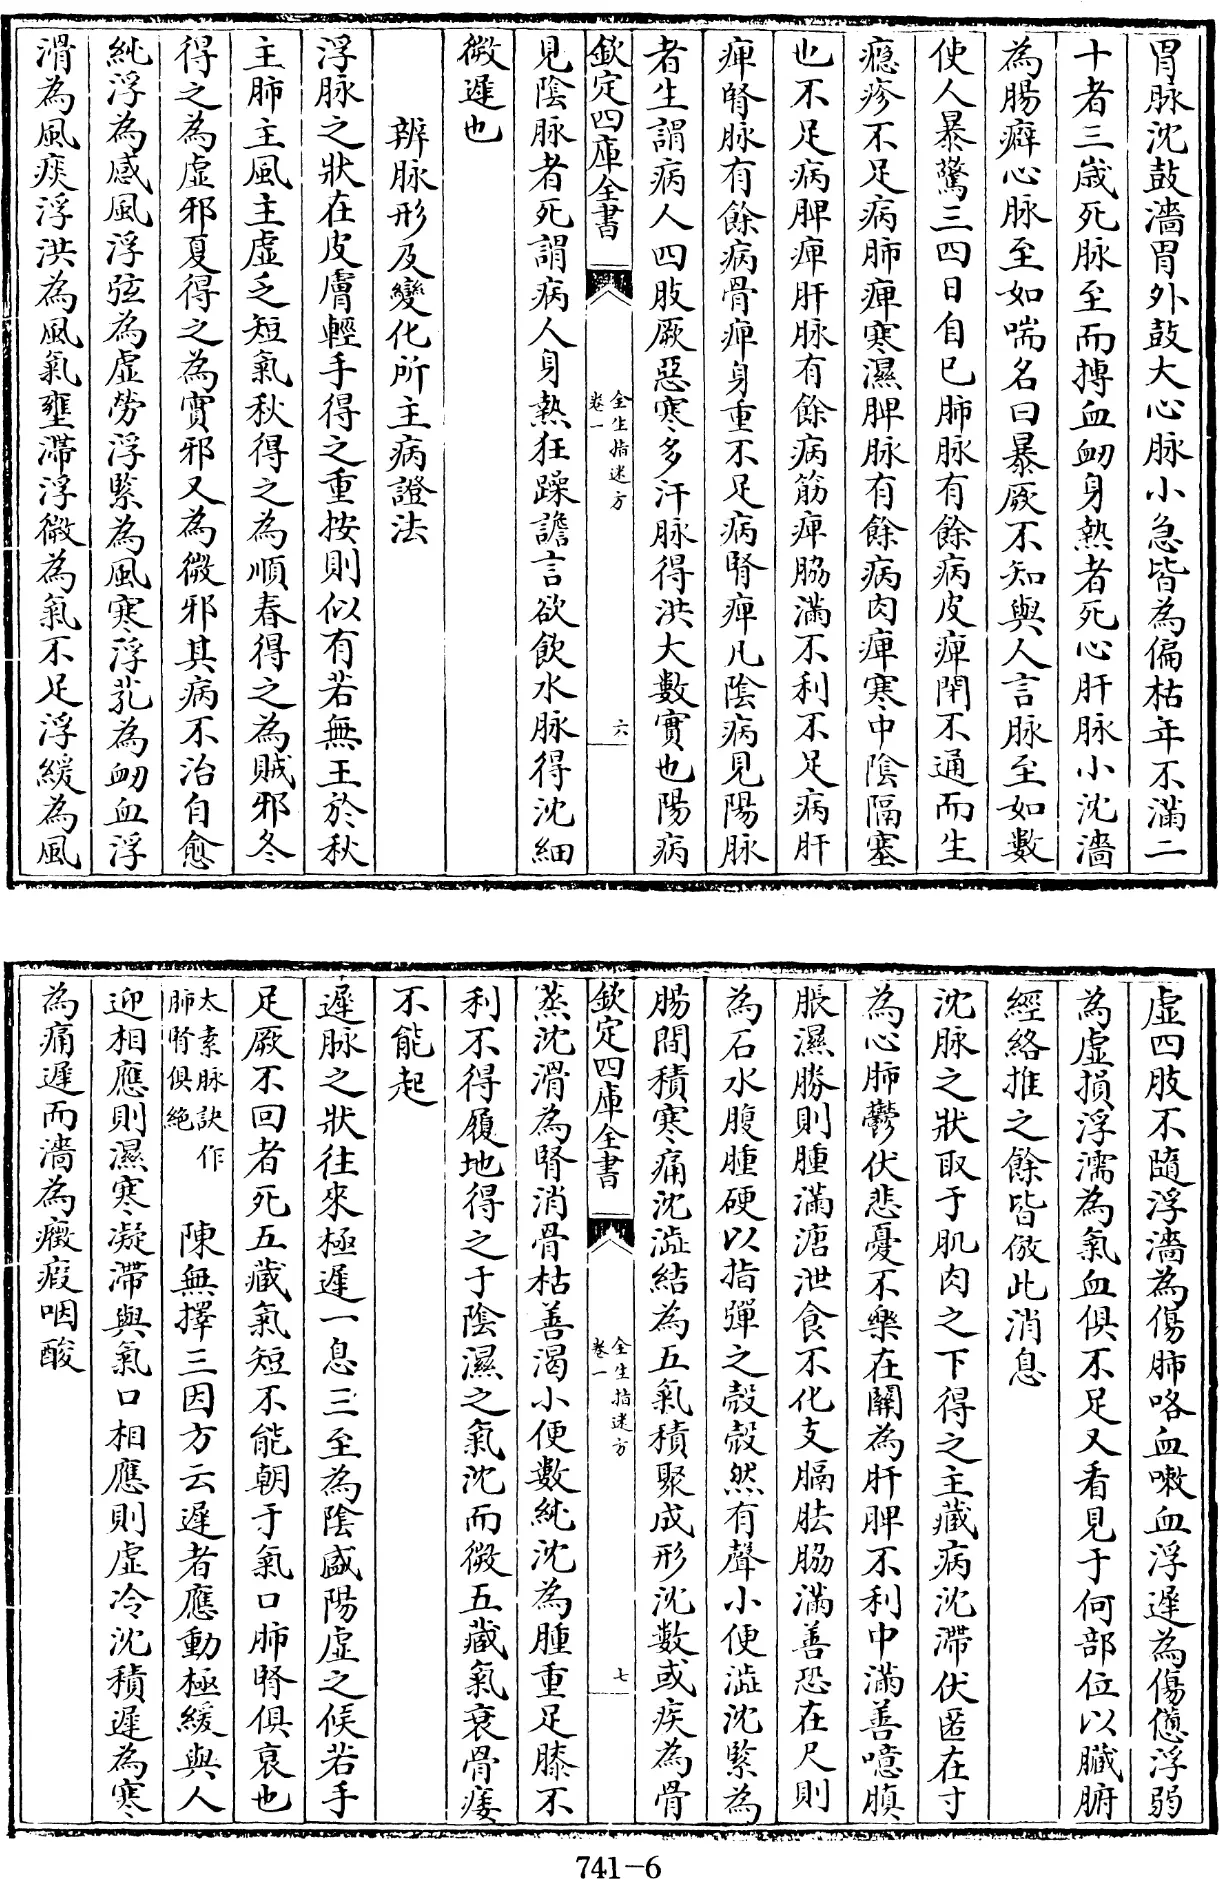 胃脉沈鼓濇胃外鼓大心脉小急皆為偏枯年不滿二
十者三歲死脉至而搏血衂身熱者死心肝脉小沈濇
為腸癖心脉至如喘名曰暴厥不知與人言脉至如數
使人暴驚三四日自已肺脉有餘病皮痺閈不通而生
癮疹不足病肺痺寒濕脾脉有餘病肉痺寒中陰隔塞
也不足病脾痺肝脉有餘病筋痺脇滿不利不足病肝
痺腎脉有餘病骨痺身重不足病腎痺凡陰病見陽脉
者生謂病人四肢厥惡寒多汗脉得洪大數實也陽病
欽定四庫全書
全生指迷方
卷一
六
見陰脉者死謂病人身熱狂躁譫言欲飲水脉得沈細
微遲也
辨脉形及變化所主病證法
浮脉之狀在皮膚輕手得之重按則似有若無王於秋
主肺主風主虛乏短氣秋得之為順春得之為賊邪冬
得之為虛邪夏得之為實邪又為微邪其病不治自愈
純浮為感風浮弦為虛勞浮緊為風寒浮芤為衂血浮
滑為風痰浮洪為風氣壅滯浮微為氣不足浮緩為風
虛四肢不隨浮濇為傷肺咯血嗽血浮遲為傷憊浮弱
為虛損浮濡為氣血俱不足又看見于何部位以臟腑
經絡推之餘皆倣此消息
沈脉之狀取于肌肉之下得之主藏病沈滯伏匿在寸
為心肺鬱伏悲憂不樂在關為肝脾不利中滿善噫䐜
脹濕勝則腫滿溏泄食不化支膈胠脇滿善恐在尺則
為石水腹腫硬以指彈之殻殻然有聲小便澁沈緊為
腸間積寒痛沈澁結為五氣積聚成形沈數或疾為骨
欽定四庫全書
全生指迷方
卷一
七
蒸沈滑為腎消骨枯善渴小便數純沈為腫重足膝不
利不得履地得之于陰濕之氣沈而微五藏氣衰骨痿
不能起
遲脉之狀往來極遲一息三至為陰盛陽虛之候若手
足厥不回者死五藏氣短不能朝于氣口肺腎俱衰也
太素脉訣作
肺腎俱絶
陳無擇三因方云遲者應動極緩與人
迎相應則濕寒凝滯與氣口相應則虛冷沈積遲為寒
為痛遲而濇為癥瘕咽酸
741-6